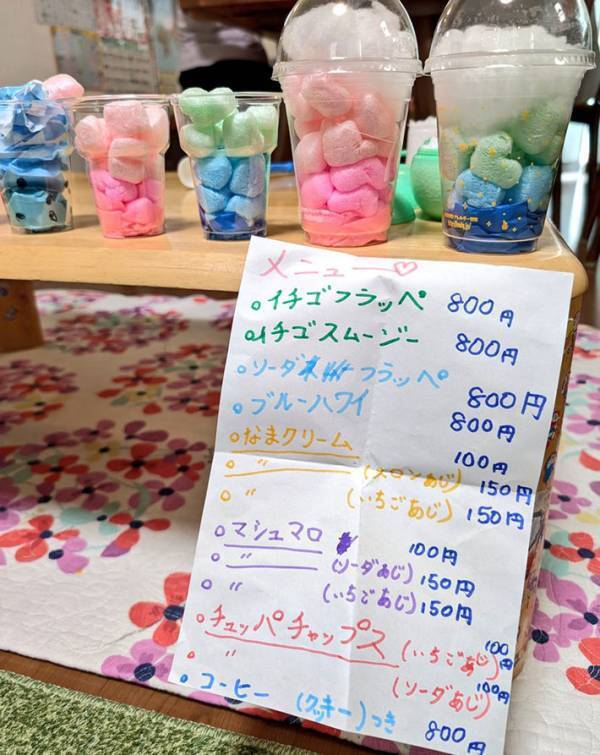 メニュー♡
。イチゴフラッペ 800円
。イチゴスムージー 800円
。ソーダフラッペ 800円
。ブルーハワイ 800円
。なまクリーム 100円
。 〃 (メロンあじ) 150円
。 〃 (いちごあじ) 150円
。マシュマロ 100円
。 〃 (ソーダあじ) 150円
。 〃 (いちごあじ) 150円
。チュッパチャップス (いちごあじ) 100円
。 〃 (ソーダあじ) 100円
。コーヒー (クッキー)つき 800円